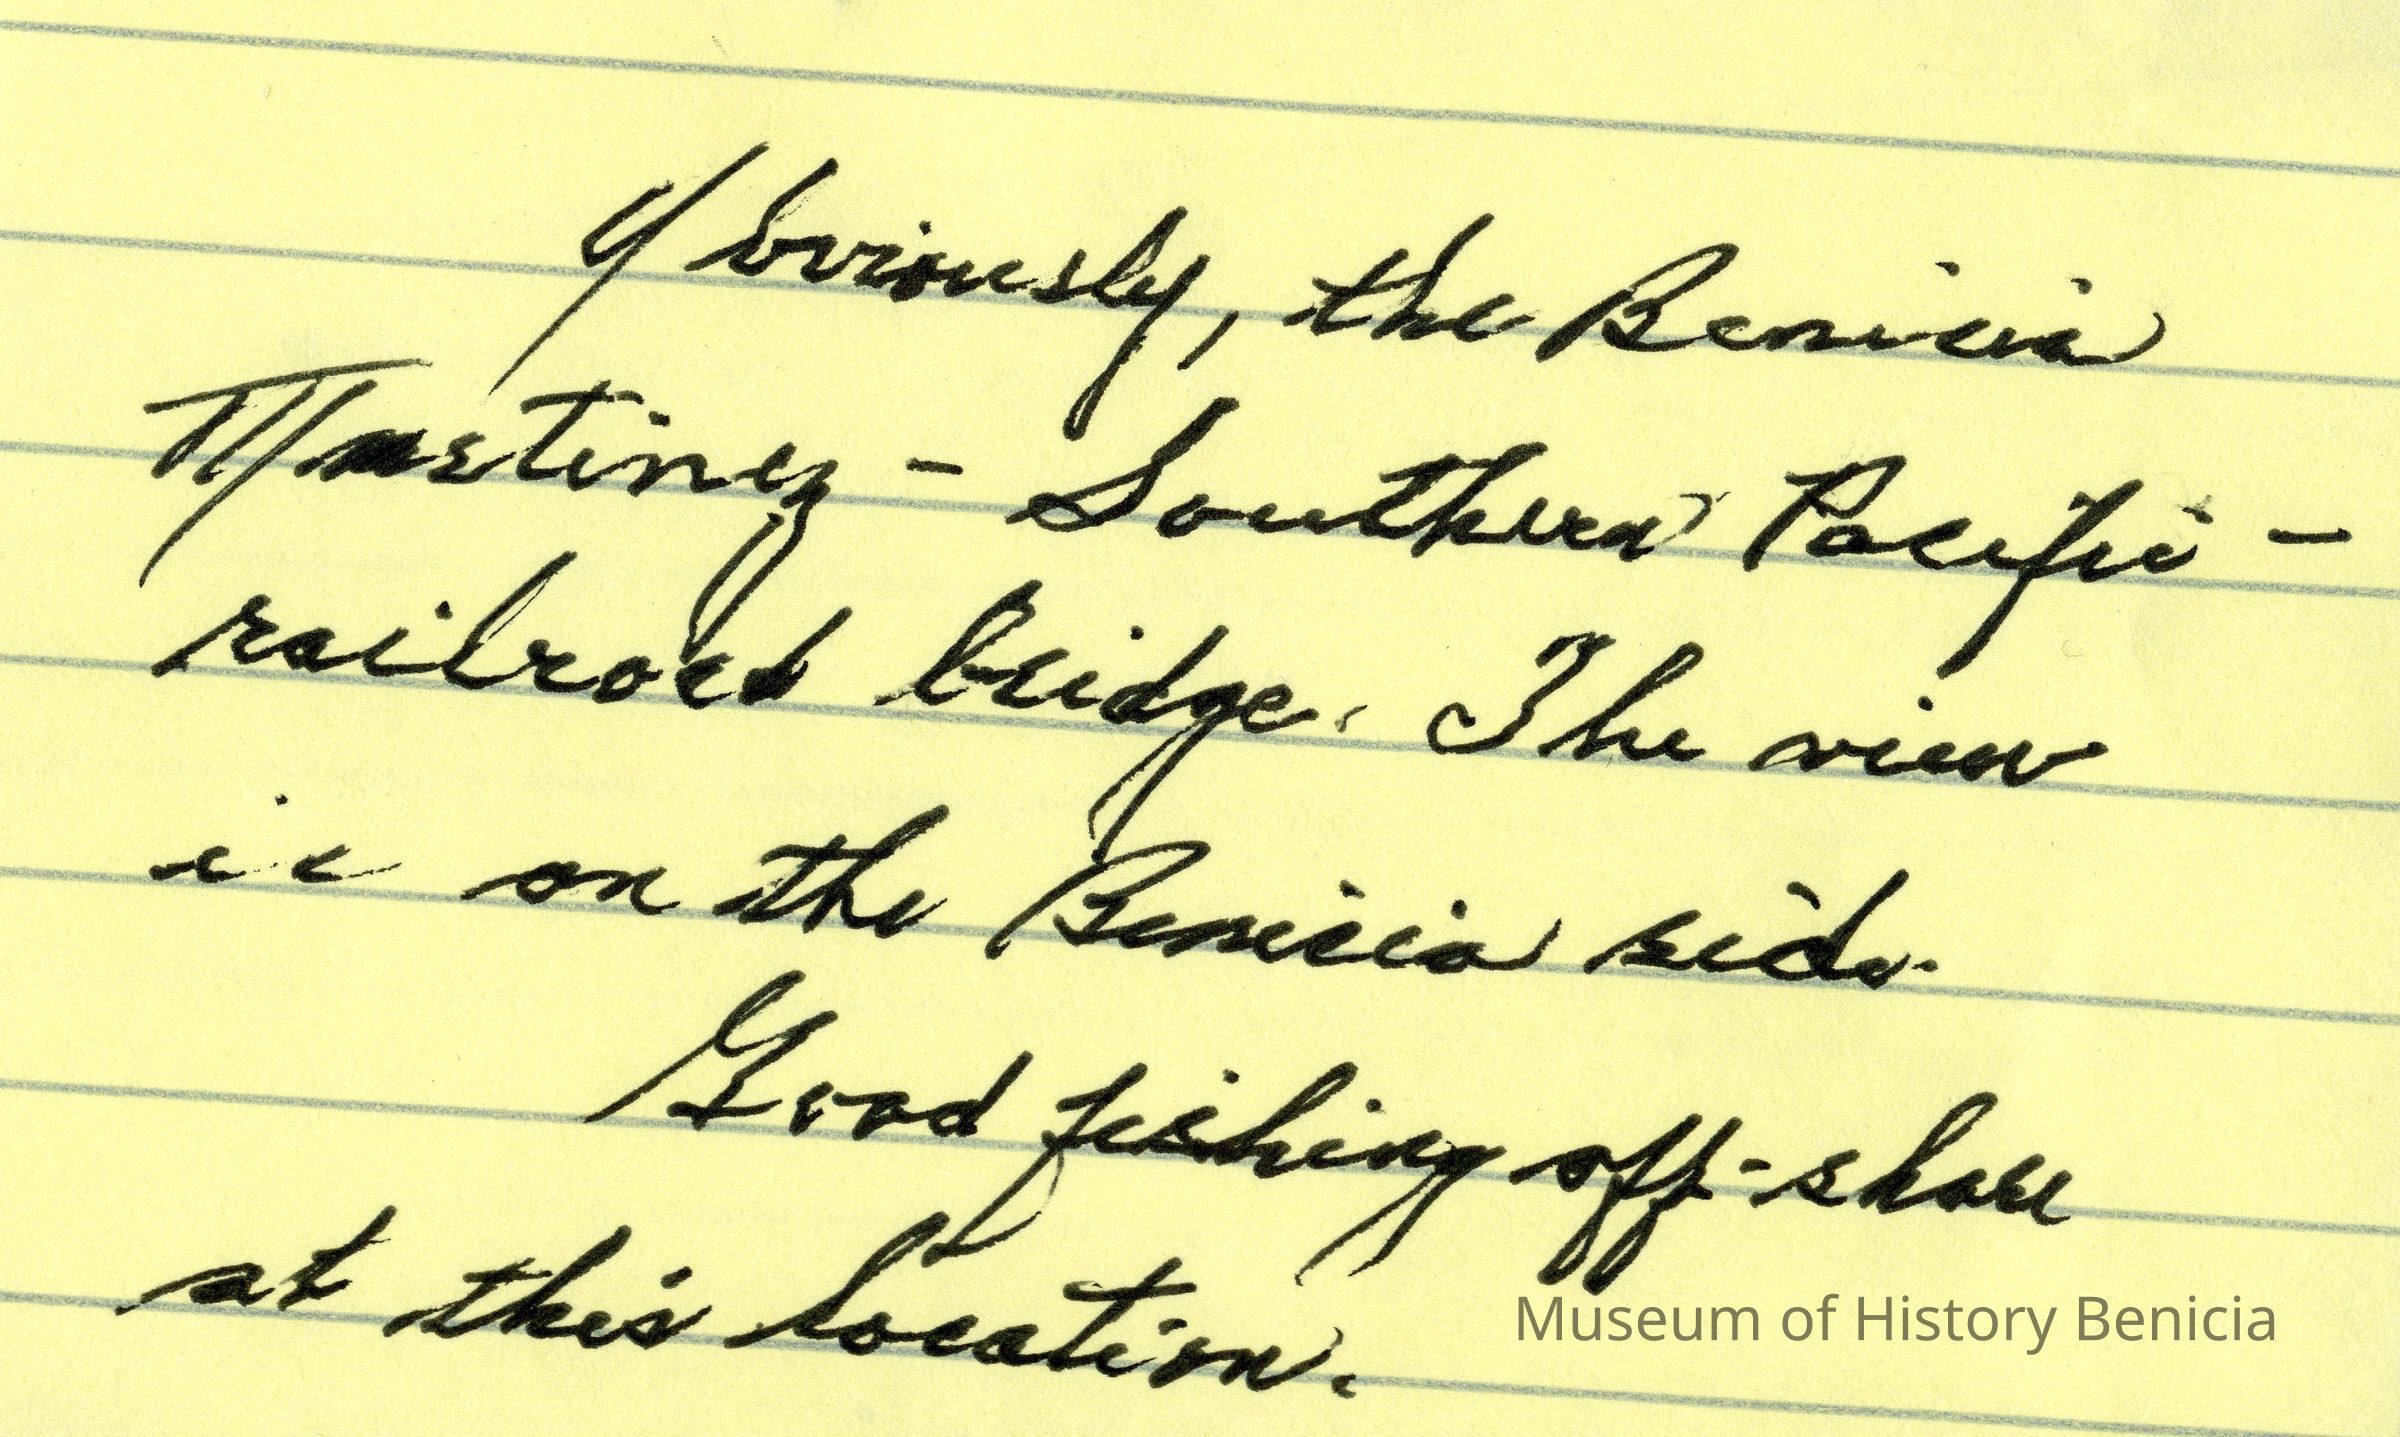 Obviously, the Benicia
Martinez - Southern Pacific -
railroad bridge. The view
is on the Benicia side.
Good fishing off-shore
at this location.
Museum of History Benicia